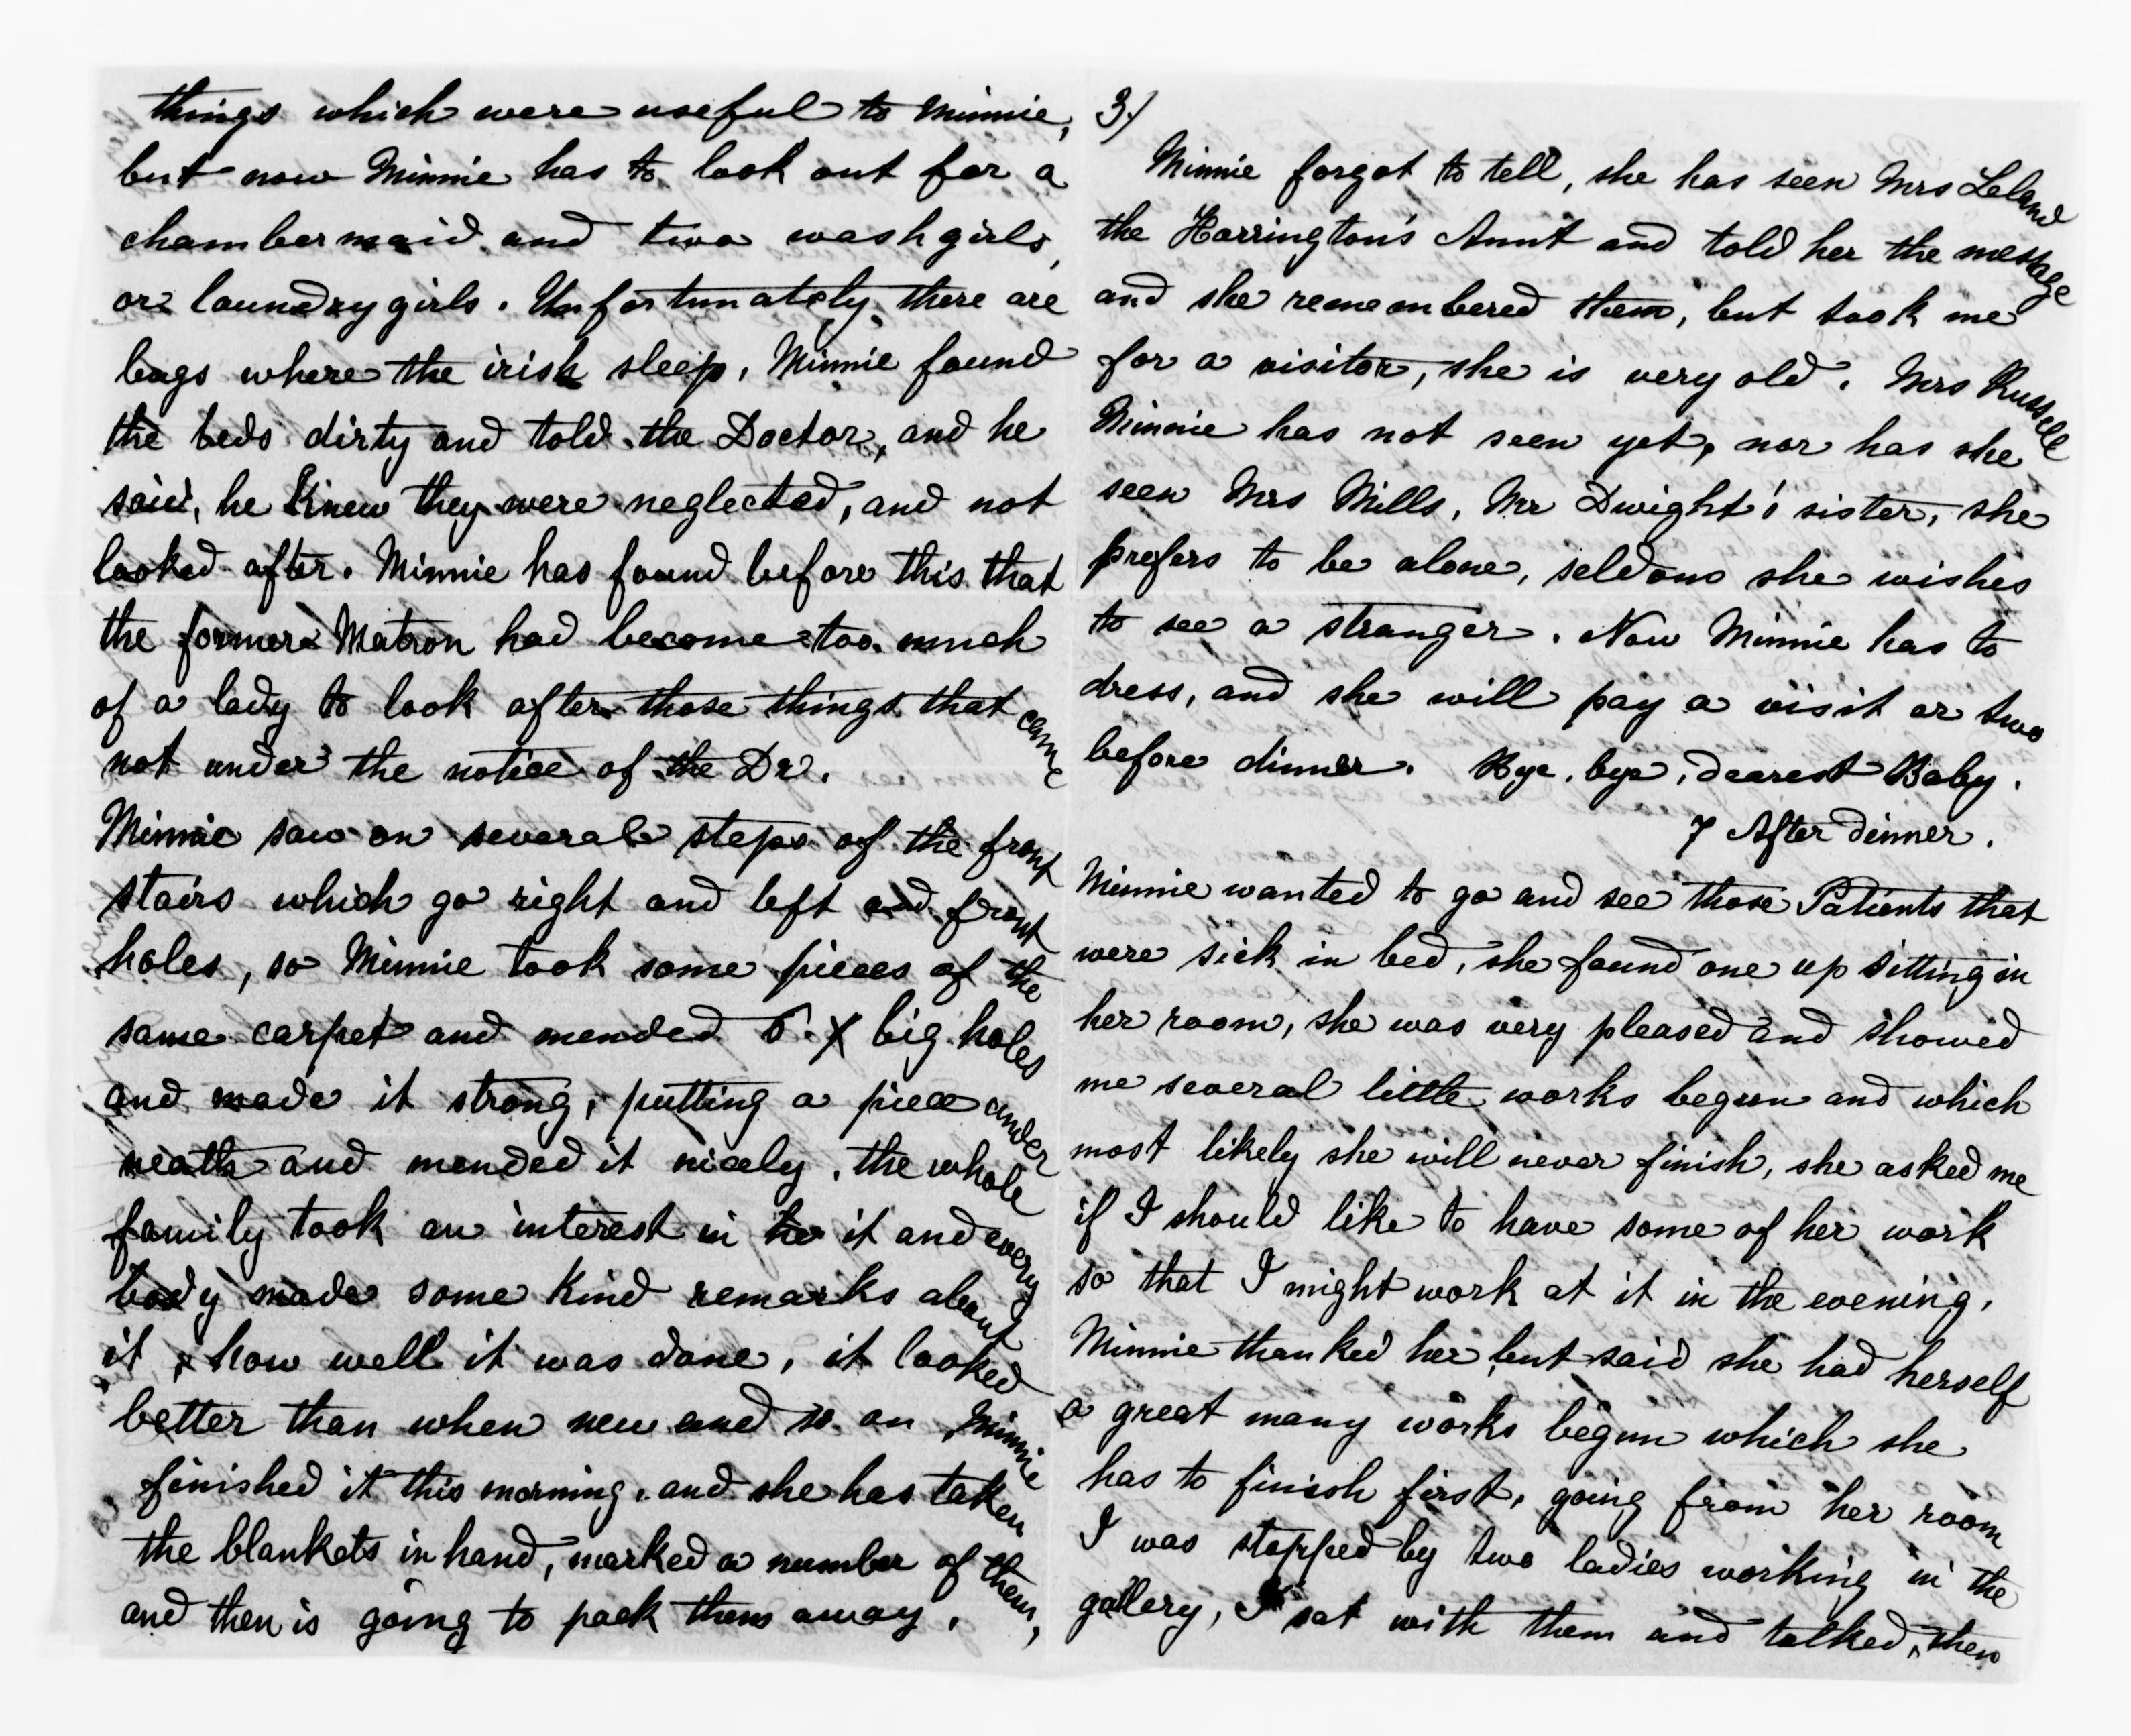 things which were useful to Minnie,
but now Minnie has to look out for a
chambermaid and two washgirls,
or laundrygirls. Unfortunately there are
bugs where the irish sleep, Minnie found
the beds dirty and told the Doctor, and he
said, he knew they were neglected, and not
looked after. Minnie has found before this that
the former Matron had become too much
of a lady to look after those things that came
not under the notice of the Dr.
Minnie saw on several steps of the front
stairs which go right and left and front
holes, so Minnie took some pieces of the
same carpet and mended 5. big holes
and made it strong, putting a piece under
neath and mended it nicely, the whole
family took an interest in it and every
body made some kind remarks about
it & how well it was done, it looked
better than when new and so on Minnie
finished it this morning, and she has taken
the blankets in hand, marked a number of them,
and then is going to pack them away.
3)
Minnie forgot to tell, she has seen Mrs Leland
the Harrington's Aunt and told her the message
and she remembered them, but took me
for a visitor, she is very old. Mrs Russell
Minnie has not seen yet, nor has she
seen Mrs Mills, Mr Dwight's sister, she
prefers to be alone, seldom she wishes
to see a stranger. Now Minnie has to
dress, and she will pay a visit or two
before dinner. Bye, bye, dearest Baby.
7 After dinner.
Minnie wanted to go and see those Patients that
were sick in bed, she found one up sitting in
her room, she was very pleased and showed
me several little works begun and which
most likely she will never finish, she asked me
if I should like to have some of her work
so that I might work at it in the evening,
Minnie thanked her but said she had herself
a great many works begun which she
has to finish first, going from her room
I was stopped by two ladies working in the
gallery, I sat with them and talked, then